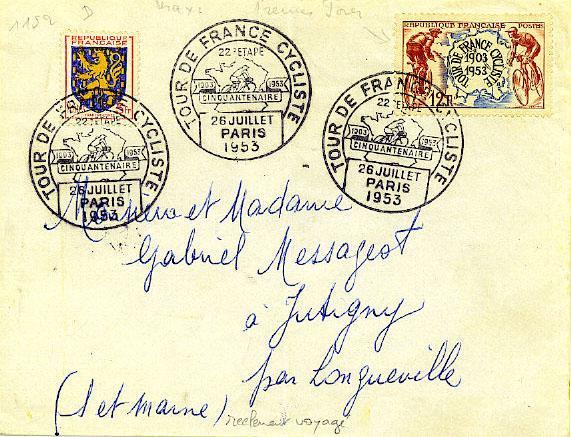 1152 D Premier Jour
REPUBLIQUE
FRANÇAISE
REPUBLIQUE FRANÇAISE POSTES
TOUR DE FRANCE CYCLISTE
1903
1953
12F
TOUR DE FRANCE CYCLISTE
22e ETAPE
1903 1953
CINQUANTENAIRE
26 JUILLET
PARIS
1953
TOUR DE FRANCE CYCLISTE
22e ETAPE
1903 1953
CINQUANTENAIRE
26 JUILLET
PARIS
1953
TOUR DE FRANCE CYCLISTE
22e ETAPE
1903 1953
CINQUANTENAIRE
26 JUILLET
PARIS
1953
Monsieur et Madame
Gabriel Messageot
à Jutigny
par Longueville
(S et Marne) réellement voyagé